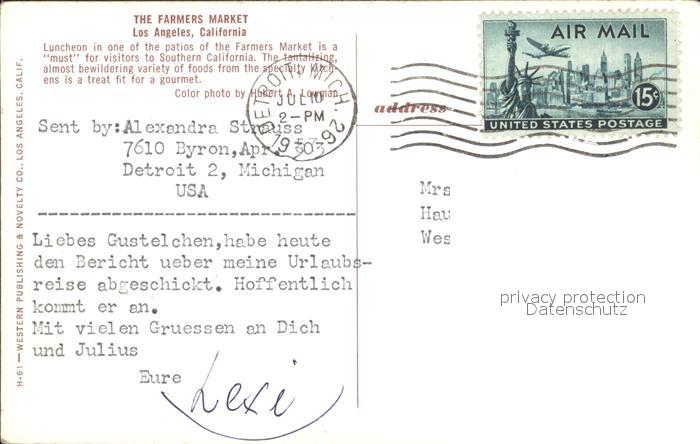 THE FARMERS MARKET
Los Angeles, California
Luncheon in one of the patios of the Farmers Market is a
"must" for visitors to Southern California. The tantalizing,
almost bewildering variety of foods from the specialty kitch-
ens is a treat fit for a gourmet.
Color photo by Hubert A. Lowman
H-61—WESTERN PUBLISHING & NOVELTY CO., LOS ANGELES, CALIF.
DETROIT, MICH. 26
JUL 10
2-PM
AIR MAIL
15¢
UNITED STATES POSTAGE
address
Sent by:Alexandra Strauss
7610 Byron,Apt. 303
Detroit 2, Michigan
USA
Liebes Gustelchen,habe heute
den Bericht ueber meine Urlaubs-
reise abgeschickt. Hoffentlich
kommt er an.
Mit vielen Gruessen an Dich
und Julius
Eure Lexi
Mrs
Hau
Wes
privacy protection
Datenschutz